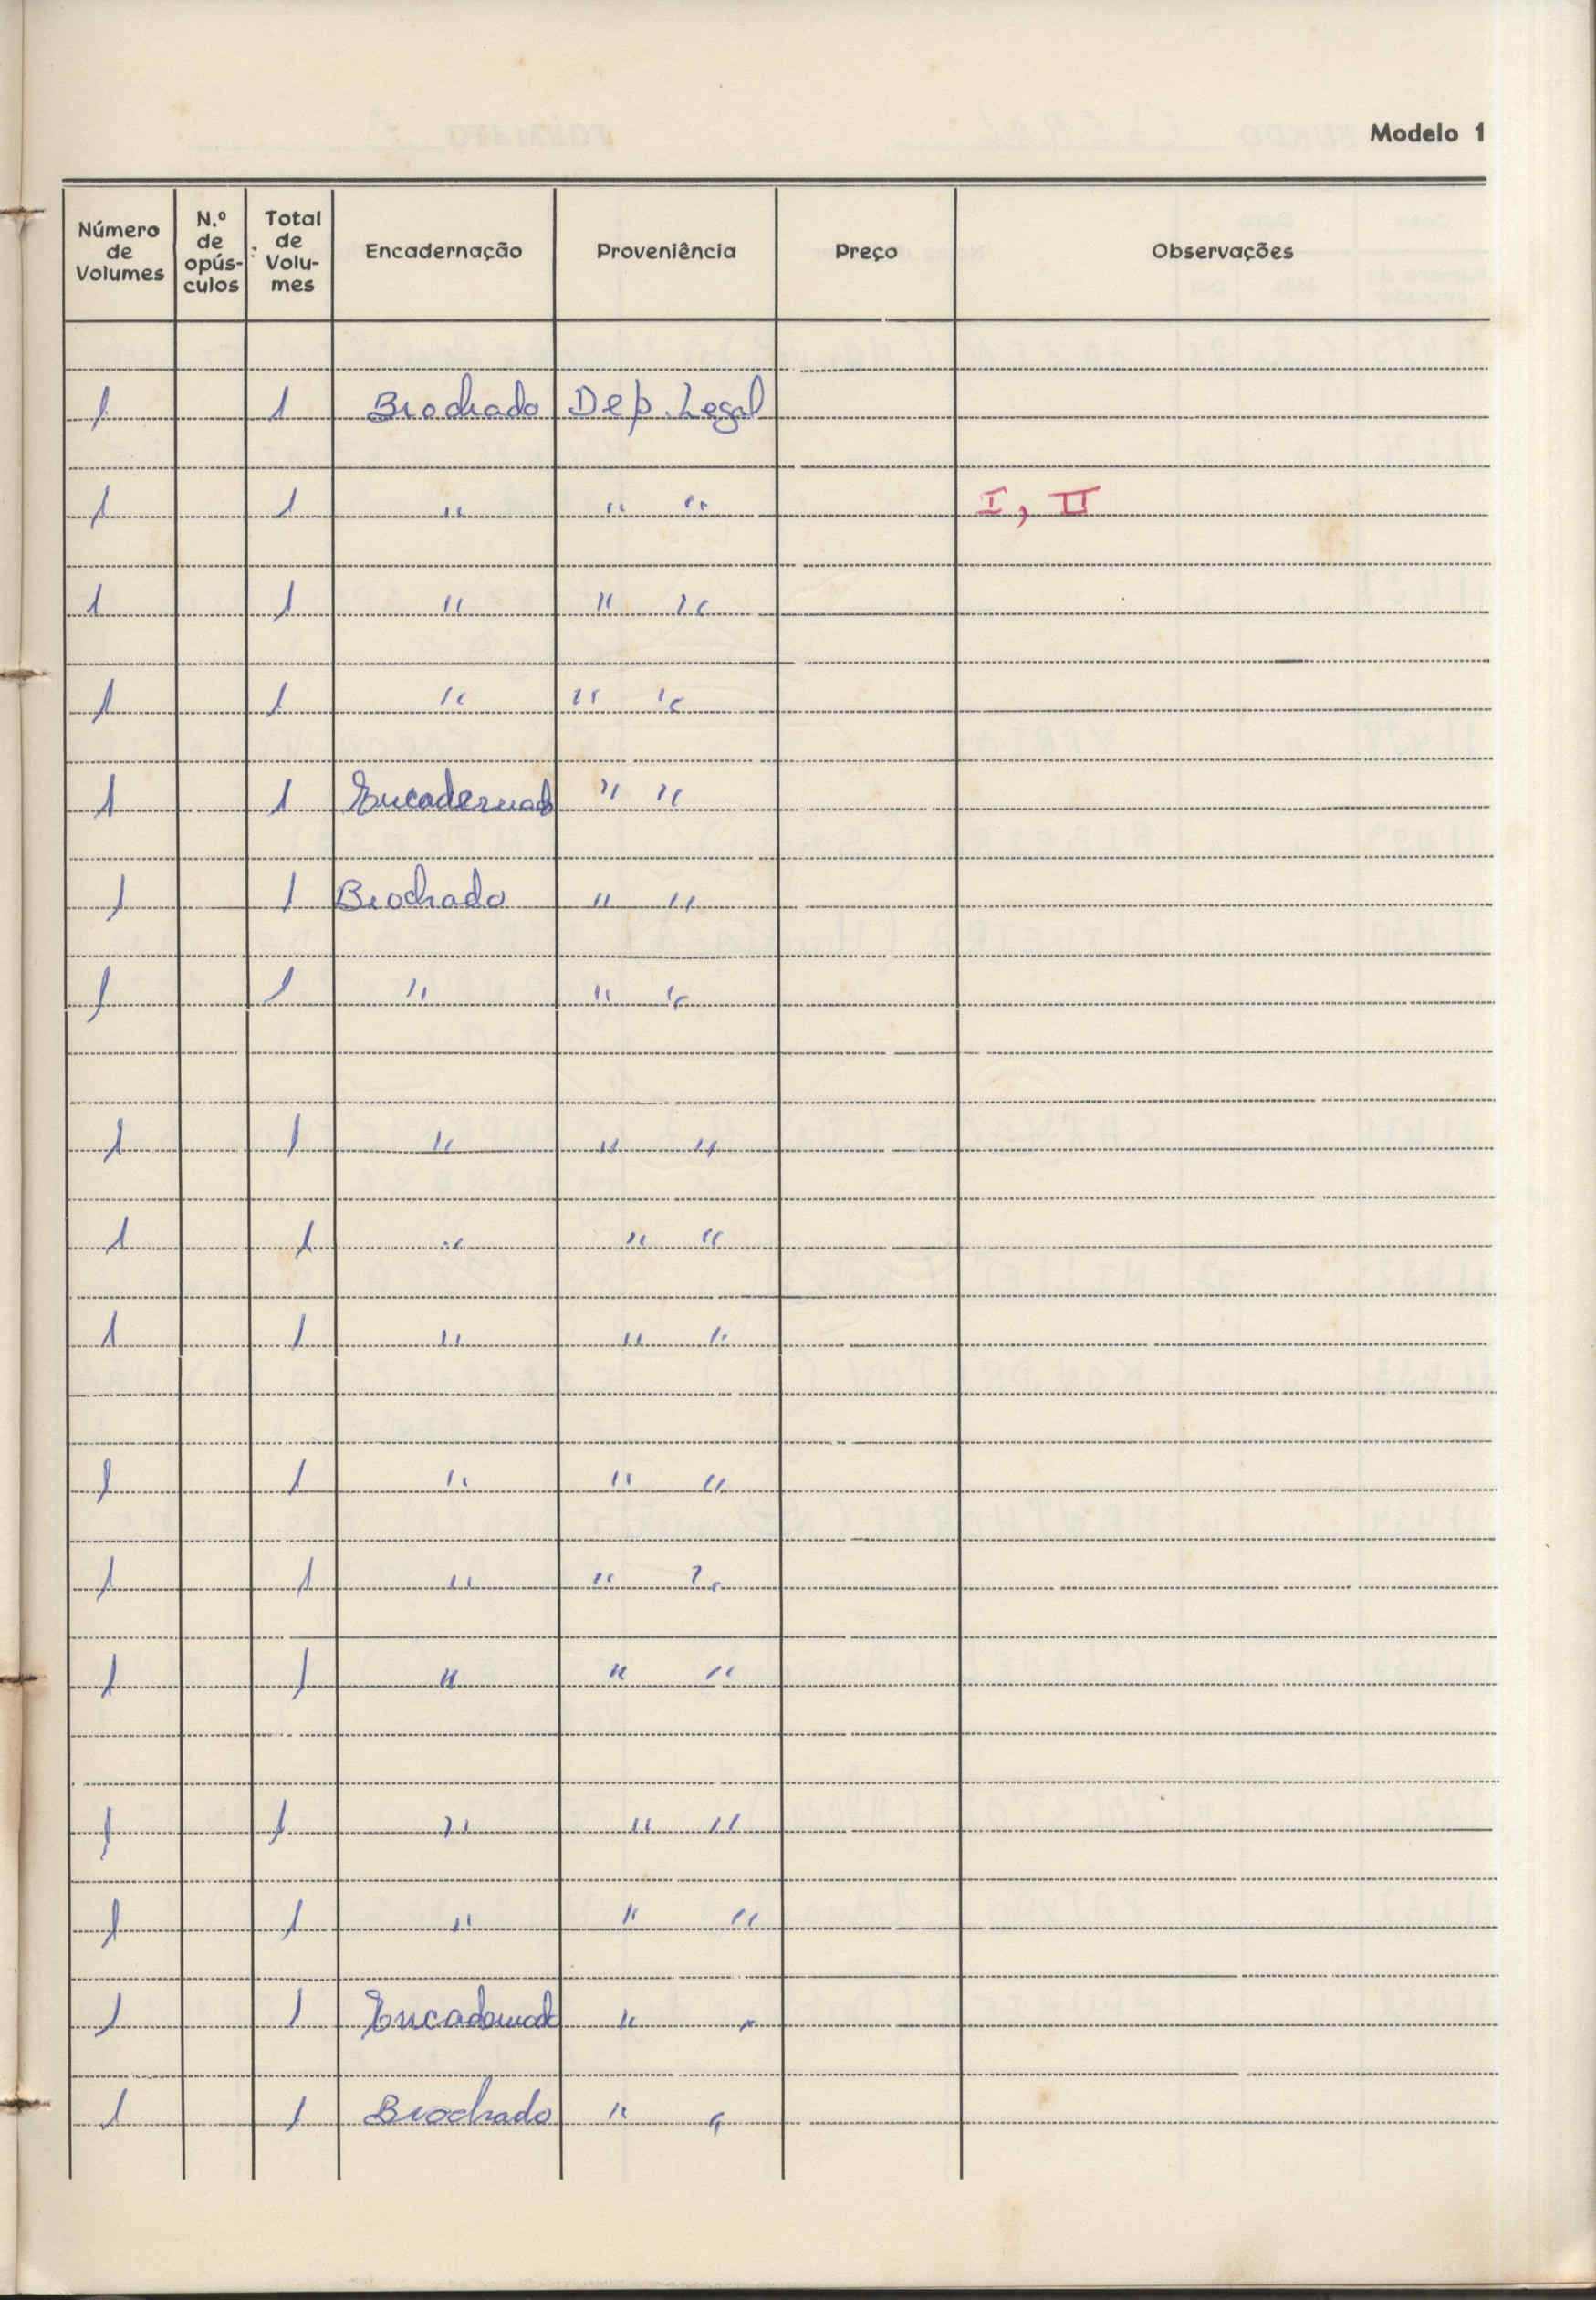 Modelo 1
Número de Volumes | N.º de opús-culos | Total de Volu-mes | Encadernação | Proveniência | Preço | Observações
1 | | 1 | Brochado | Dep. Legal | |
1 | | 1 | " | " " | | I, II
1 | | 1 | " | " " | |
1 | | 1 | " | " " | |
1 | | 1 | Encadernado | " " | |
1 | | 1 | Brochado | " " | |
1 | | 1 | " | " " | |
1 | | 1 | " | " " | |
1 | | 1 | " | " " | |
1 | | 1 | " | " " | |
1 | | 1 | " | " " | |
1 | | 1 | " | " " | |
1 | | 1 | " | " " | |
1 | | 1 | " | " " | |
1 | | 1 | " | " " | |
1 | | 1 | Encadernado | " " | |
1 | | 1 | Brochado | " " | |